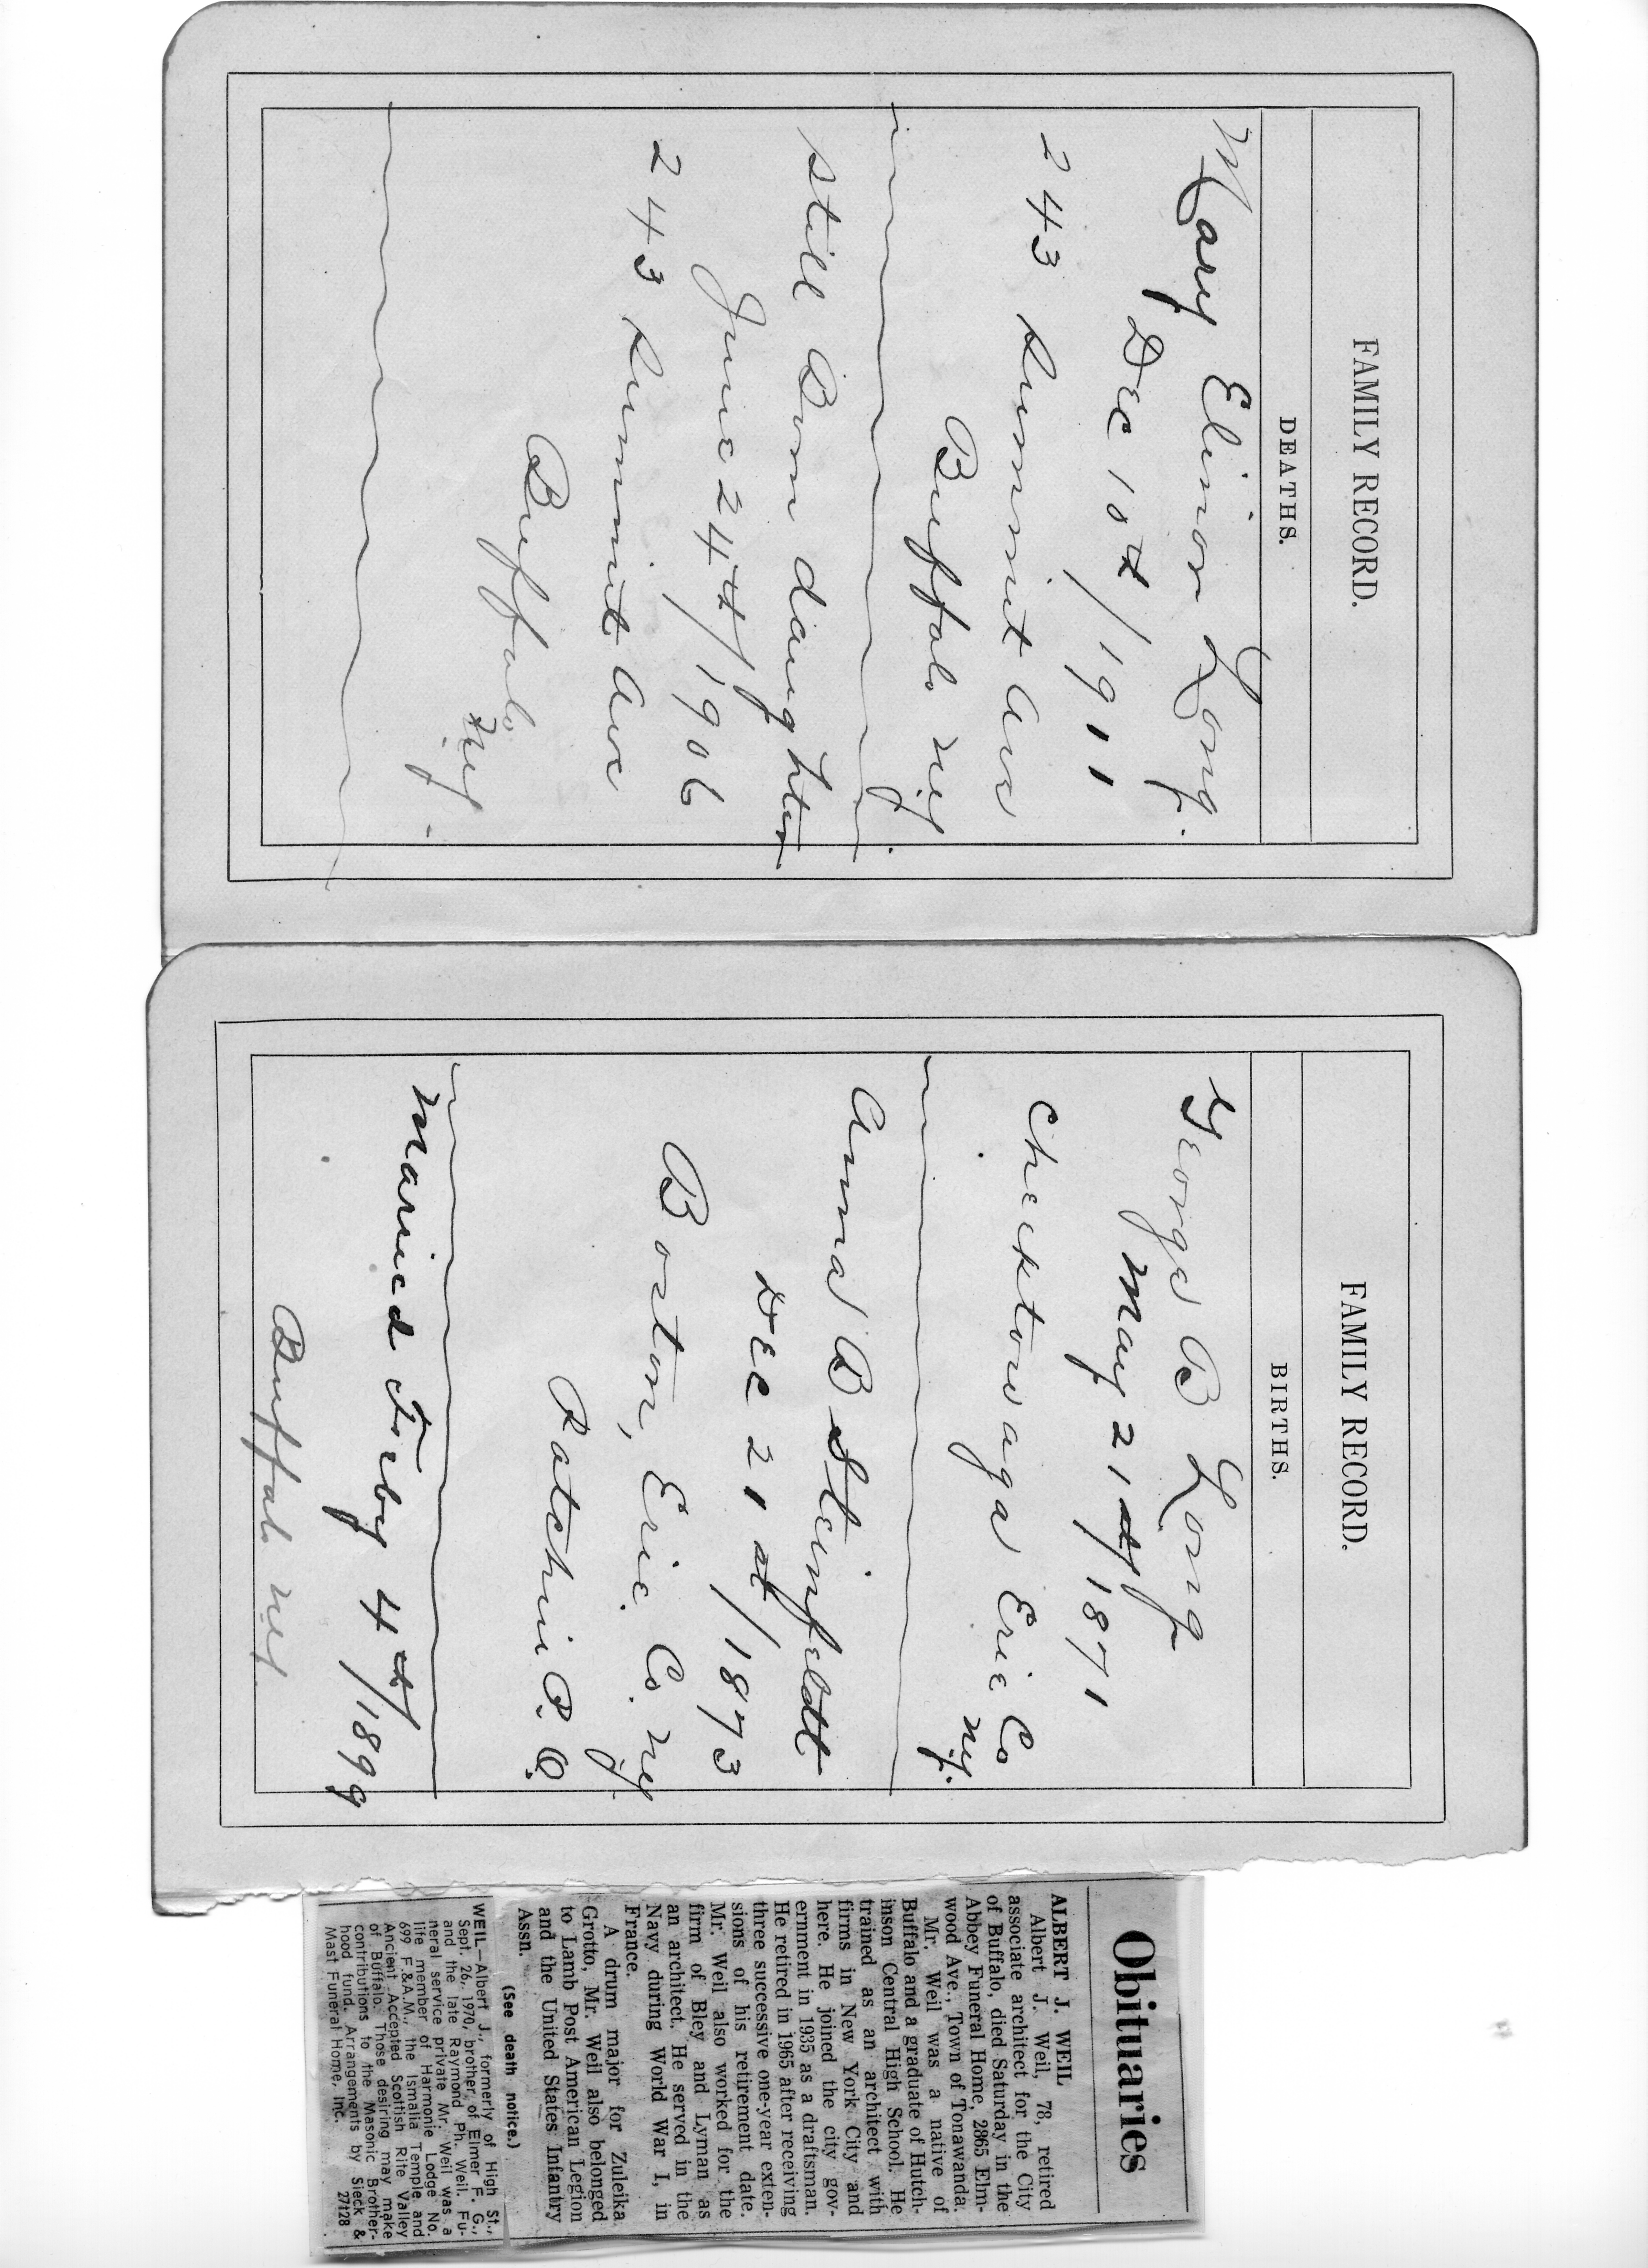 FAMILY RECORD.
DEATHS.
Mary Elinor Long.
Dec 10th / 1911
243 Summit Ave
Buffalo N.Y.
Still Born daughter
June 24th / 1906
243 Summit Ave
Buffalo
N.Y.
FAMILY RECORD.
BIRTHS.
George B Long
May 21st / 1871
Cheektowaga Erie Co
N.Y.
Anna B Steinfeldt
Dec 21st / 1873
Boston, Erie Co. N.Y.
Patchin P.O.
Maried Feby 4th / 1899
Buffalo N.Y.
Obituaries
ALBERT J. WEIL
Albert J. Weil, 78, retired
associate architect for the City
of Buffalo, died Saturday in the
Abbey Funeral Home, 2865 Elm-
wood Ave., Town of Tonawanda.
Mr. Weil was a native of
Buffalo and a graduate of Hutch-
inson Central High School. He
trained as an architect with
firms in New York City and
here. He joined the city gov-
ernment in 1935 as a draftsman.
He retired in 1965 after receiving
three successive one-year exten-
sions of his retirement date.
Mr. Weil also worked for the
firm of Bley and Lyman as
an architect. He served in the
Navy during World War I, in
France.
A drum major for Zuleika
Grotto, Mr. Weil also belonged
to Lamb Post American Legion
and the United States Infantry
Assn.
(See death notice.)
WEIL—Albert J., formerly of High St.,
Sept. 26, 1970, brother of Elmer F. G.,
and the late Raymond Ph. Weil. Fu-
neral service private Mr. Weil was a
life member of Harmonie Lodge No.
699 F.&A.M., the Ismalia Temple and
Ancient Accepted Scottish Rite Valley
of Buffalo. Those desiring may make
contributions to the Masonic Brother-
hood fund. Arrangements by Sieck &
Mast Funeral Home, Inc. 27t28